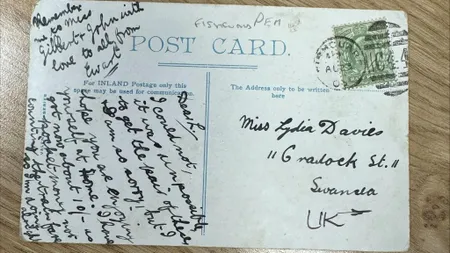 Remember
me to Miss
Gilbert & John with
love to all from
Ewart
FISHGUARD PEM
POST CARD.
For INLAND Postage only this
space may be used for communication.
The Address only to be written
here
Dear L.
I could not,
it was impossible
to get the pair of these
I am so sorry, but I
hope you are enjoying
yourself at home. I have
got now about 10/- as
pocket-money now
counting the train fare
Miss Lydia Davies
11 Cradock St.
Swansea
UK